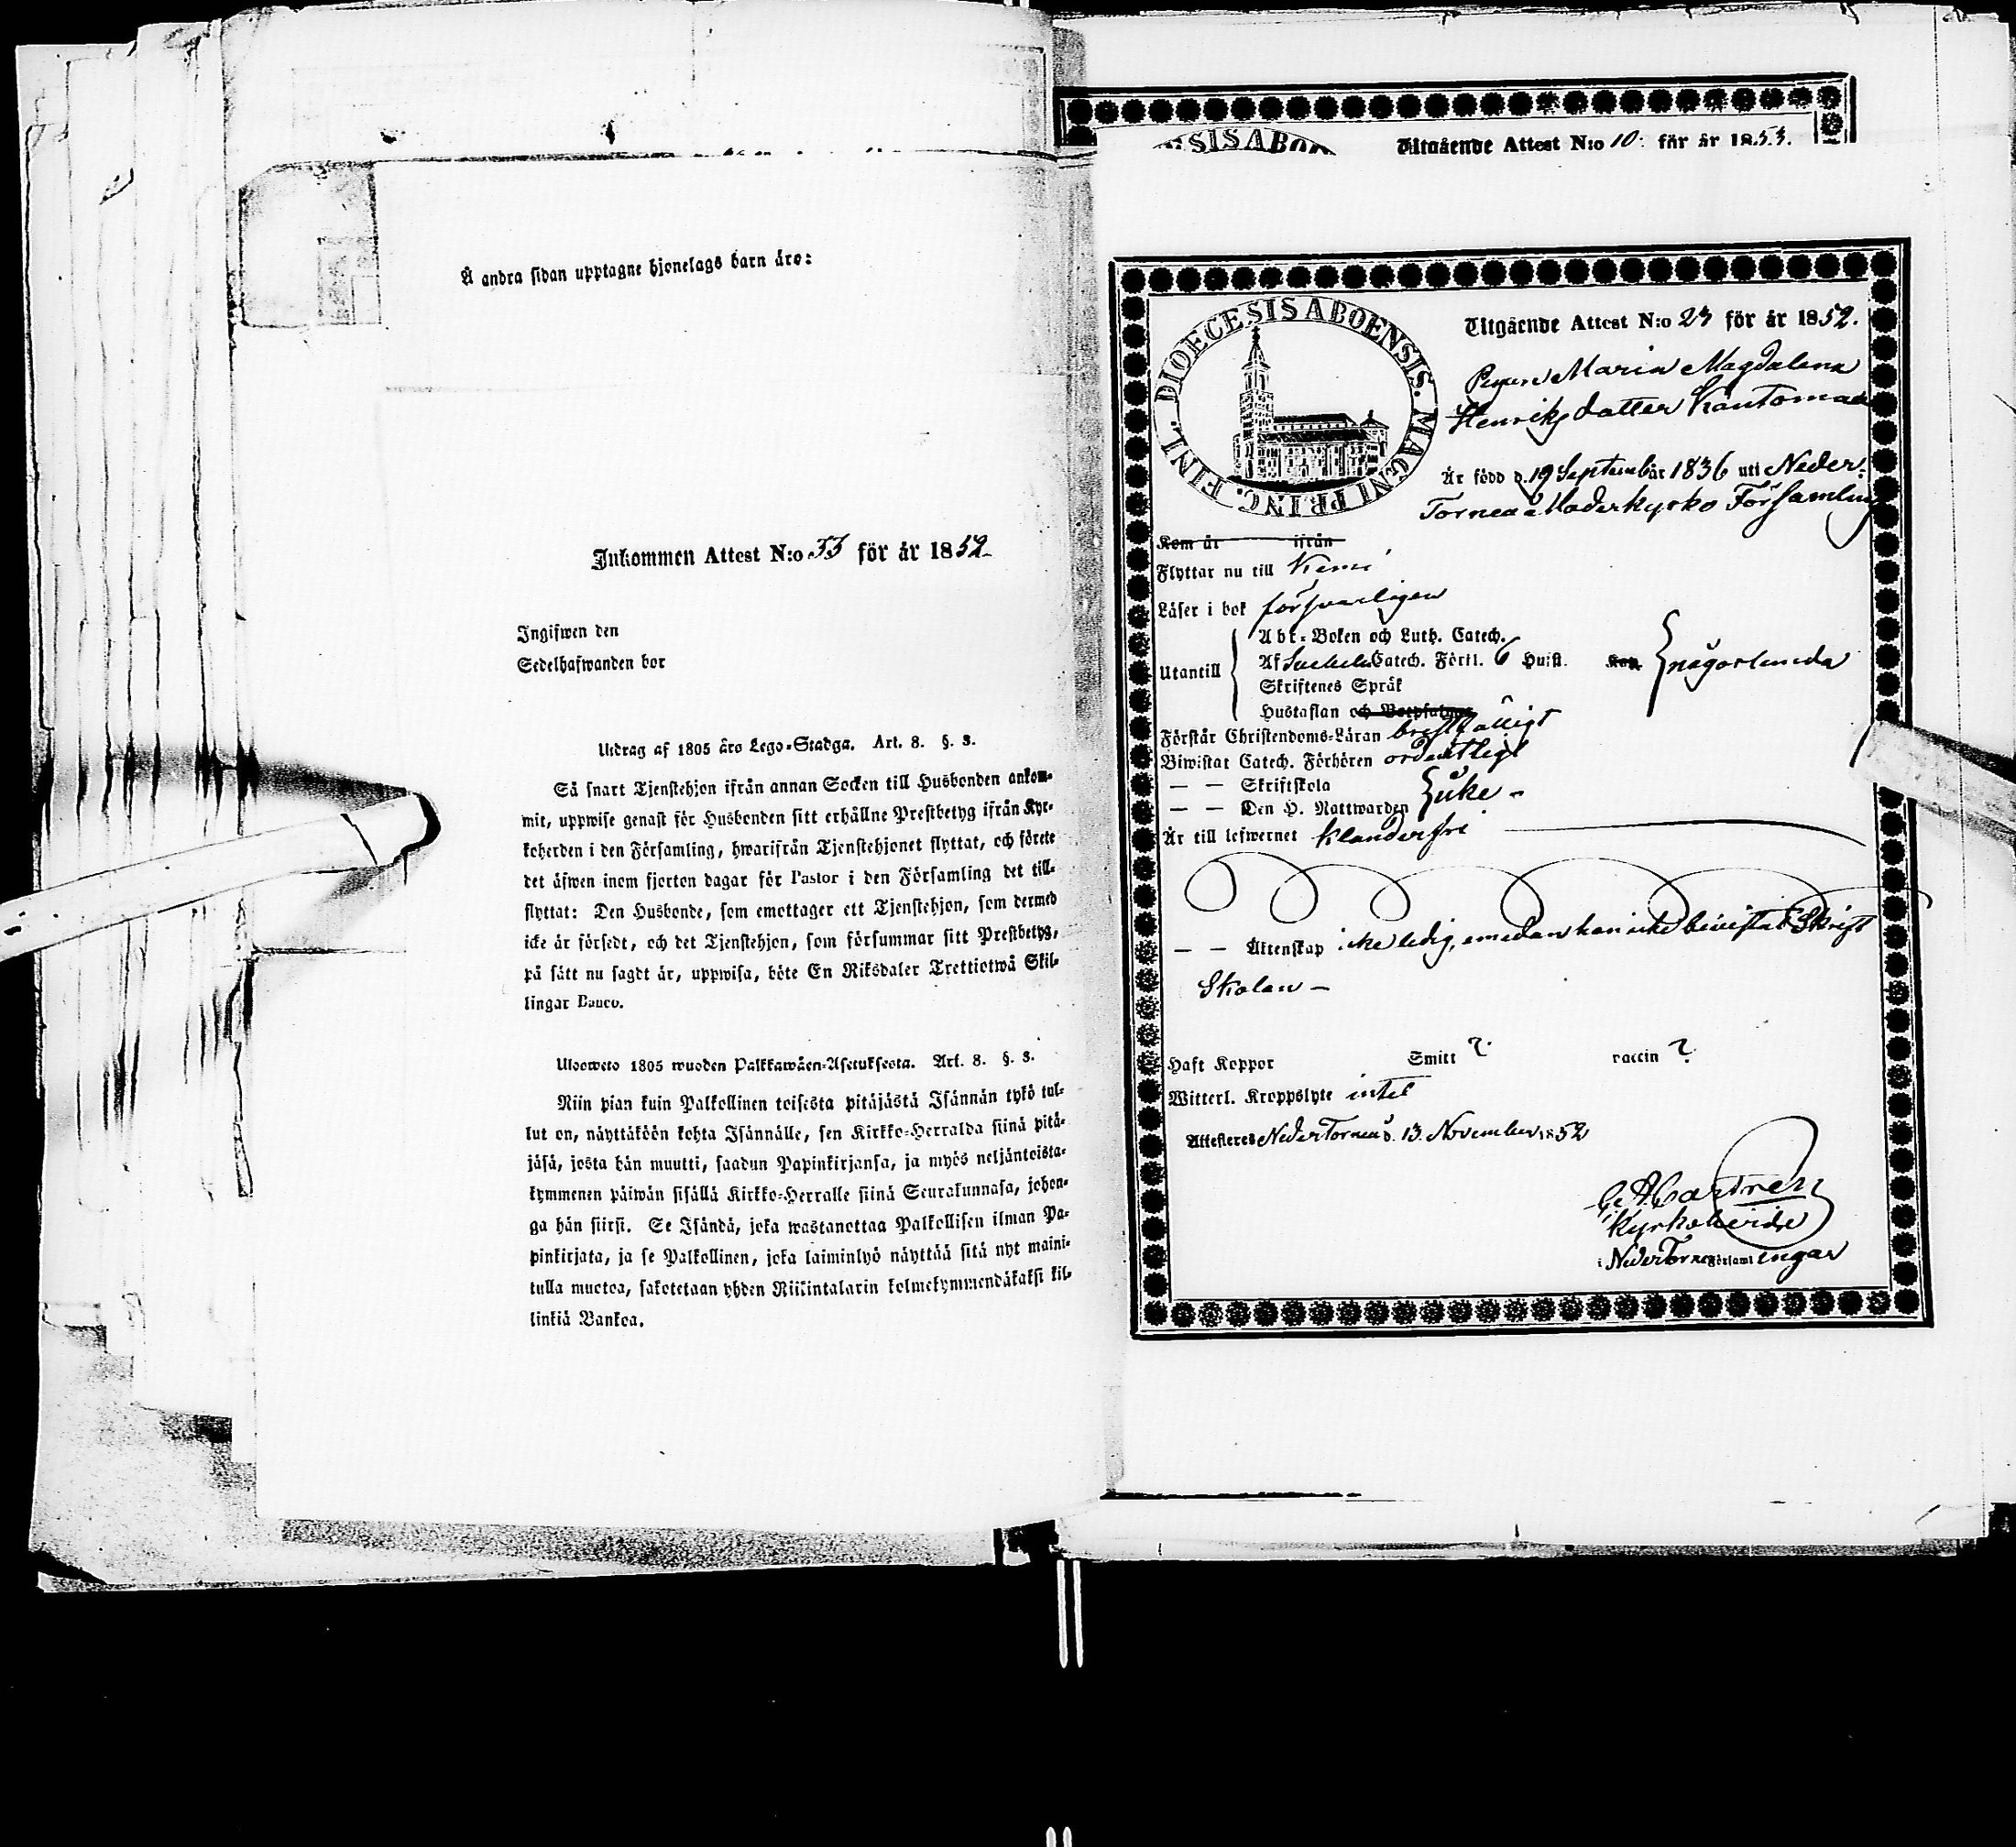 Å andra sidan upptagne hjonelags barn äro:
Inkommen Attest N:o 33 för år 1852
Ingifwen den
Sedelhafwanden bor
Utdrag af 1805 års Lego-Stadga. Art. 8. §. 3.
Så snart Tjenstehjon ifrån annan Socken till Husbonden ankom-
mit, uppwise genast för Husbonden sitt erhållne Prestbetyg ifrån Kyr-
koherden i den Församling, hwarifrån Tjenstehjonet flyttat, och förete
det äfwen inom fjorton dagar för Pastor i den Församling det till-
flyttat: Den Husbonde, som emottager ett Tjenstehjon, som dermed
icke är försedt, och det Tjenstehjon, som försummar sitt Prestbetyg,
på sätt nu sagdt är, uppwisa, böte En Riksdaler Trettiotwå Skil-
lingar Banco.
Ulosweto 1805 wuoden Palkkawäen-Asetuksesta. Art. 8. §. 3.
Niin pian kuin Palkollinen toisesta pitäjästä Isännän tykö tul-
lut on, näyttäköön kohta Isännälle, sen Kirkko-Herralda siinä pitä-
jäsä, josta hän muutti, saadun Papinkirjansa, ja myös neljäntoista-
kymmenen päiwän sisällä Kirkko-Herralle siinä Seurakunnasa, johon-
ga hän siirsi. Se Isändä, joka wastanottaa Palkollisen ilman Pa-
pinkirjata, ja se Palkollinen, joka laiminlyö näyttää sitä nyt maini-
tulla muotoa, sakotetaan yhden Riikintalarin kolmekymmendäkaksi kil-
linkiä Bankoa.
SIS ABOE Utgående Attest N:o 10: för år 1853.
DIOECESIS ABOENSIS. MAGNI PRINC. FINL.
Utgående Attest N:o 23 för år 1852.
Pigan Maria Magdalena
Henriksdatter Kantomaa
Är född d. 19 September 1836 uti Neder
Torneå Moderkyrko Församling
Kom år ifrån
Flyttar nu till Kemi
Läser i bok försvarligen
Abc-Boken och Luth. Catech.
Utantill Af Catech. Förkl. 6 Huf.st. någorlunda
Skriftenes Språk
Hustaflan och Botpsalmer
Förstår Christendoms-Läran bristfälligt
Biwistat Catech. Förhören ordentligt
— — Skriftskola
— — Den H. Nattwarden icke -
Är till lefwernet klanderfri
— — Äktenskap icke ledig, emedan hon icke beivistat Skrift
Skolan -
Haft Koppor Smitt ? vaccin ?
Witterl. Kroppslyte intet
Attesteres Neder Torneå d. 13 November 1852
Castrén
Kyrkoherde
i Neder Torneå Församlingar